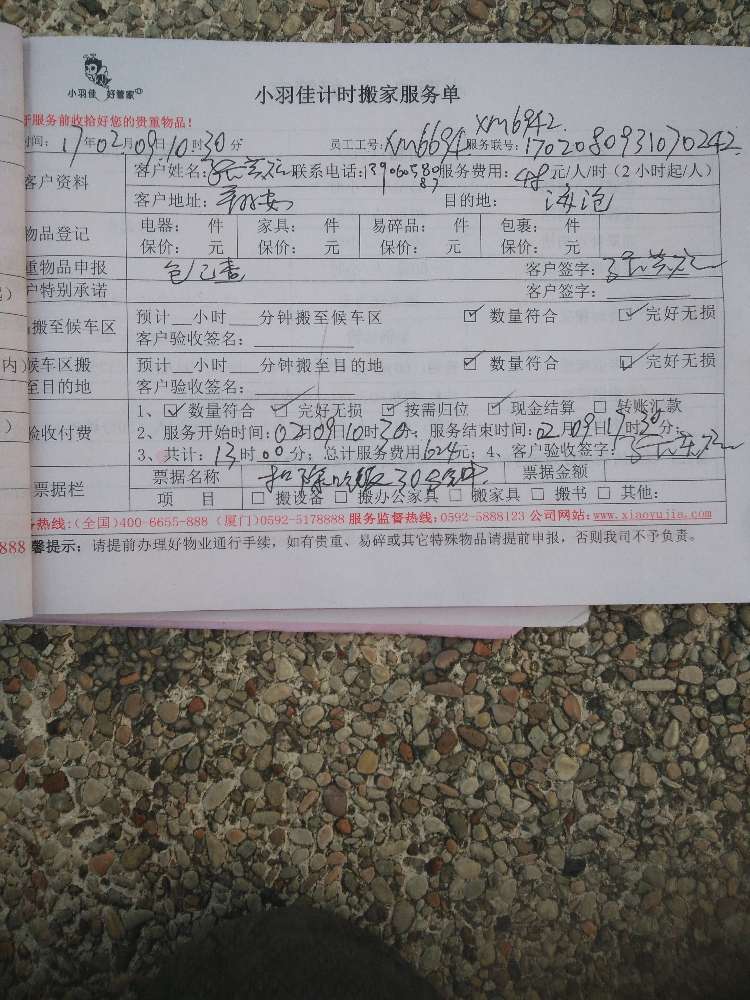 小羽佳 好管家
小羽佳计时搬家服务单
服务前收拾好您的贵重物品！
xm6942
时间：17年02月09日10时30分 员工工号：xm6694 服务联号：1702080931070242
客户资料 客户姓名： 联系电话：13906058087 服务费用：48元/人/时（2小时起/人）
客户地址：翔安 目的地：海沧
物品登记 电器： 件 家具： 件 易碎品： 件 包裹： 件
保价： 元 保价： 元 保价： 元 保价： 元
重物品申报 包已查 客户签字：
户特别承诺 客户签字：
搬至候车区 预计 小时 分钟搬至候车区 ☑ 数量符合 ☑ 完好无损
客户验收签名：
内）候车区搬 预计 小时 分钟搬至目的地 ☑ 数量符合 ☑ 完好无损
至目的地 客户验收签名：
验收付费 1、☑ 数量符合 ☑ 完好无损 ☑ 按需归位 ☑ 现金结算 □ 转账汇款
2、服务开始时间：02月09日10时30分；服务结束时间：02月09日17时30分；
3、共计：13时00分；总计服务费用624元；4、客户验收签字：
票据栏 票据名称 扣除吃饭30分钟 票据金额
项 目 □ 搬设备 □ 搬办公家具 □ 搬家具 □ 搬书 □ 其他：
务热线：(全国)400-6655-888 (厦门)0592-5178888 服务监督热线：0592-5888123 公司网站：www.xiaoyujia.com
888 馨提示：请提前办理好物业通行手续，如有贵重、易碎或其它特殊物品请提前申报，否则我司不予负责。